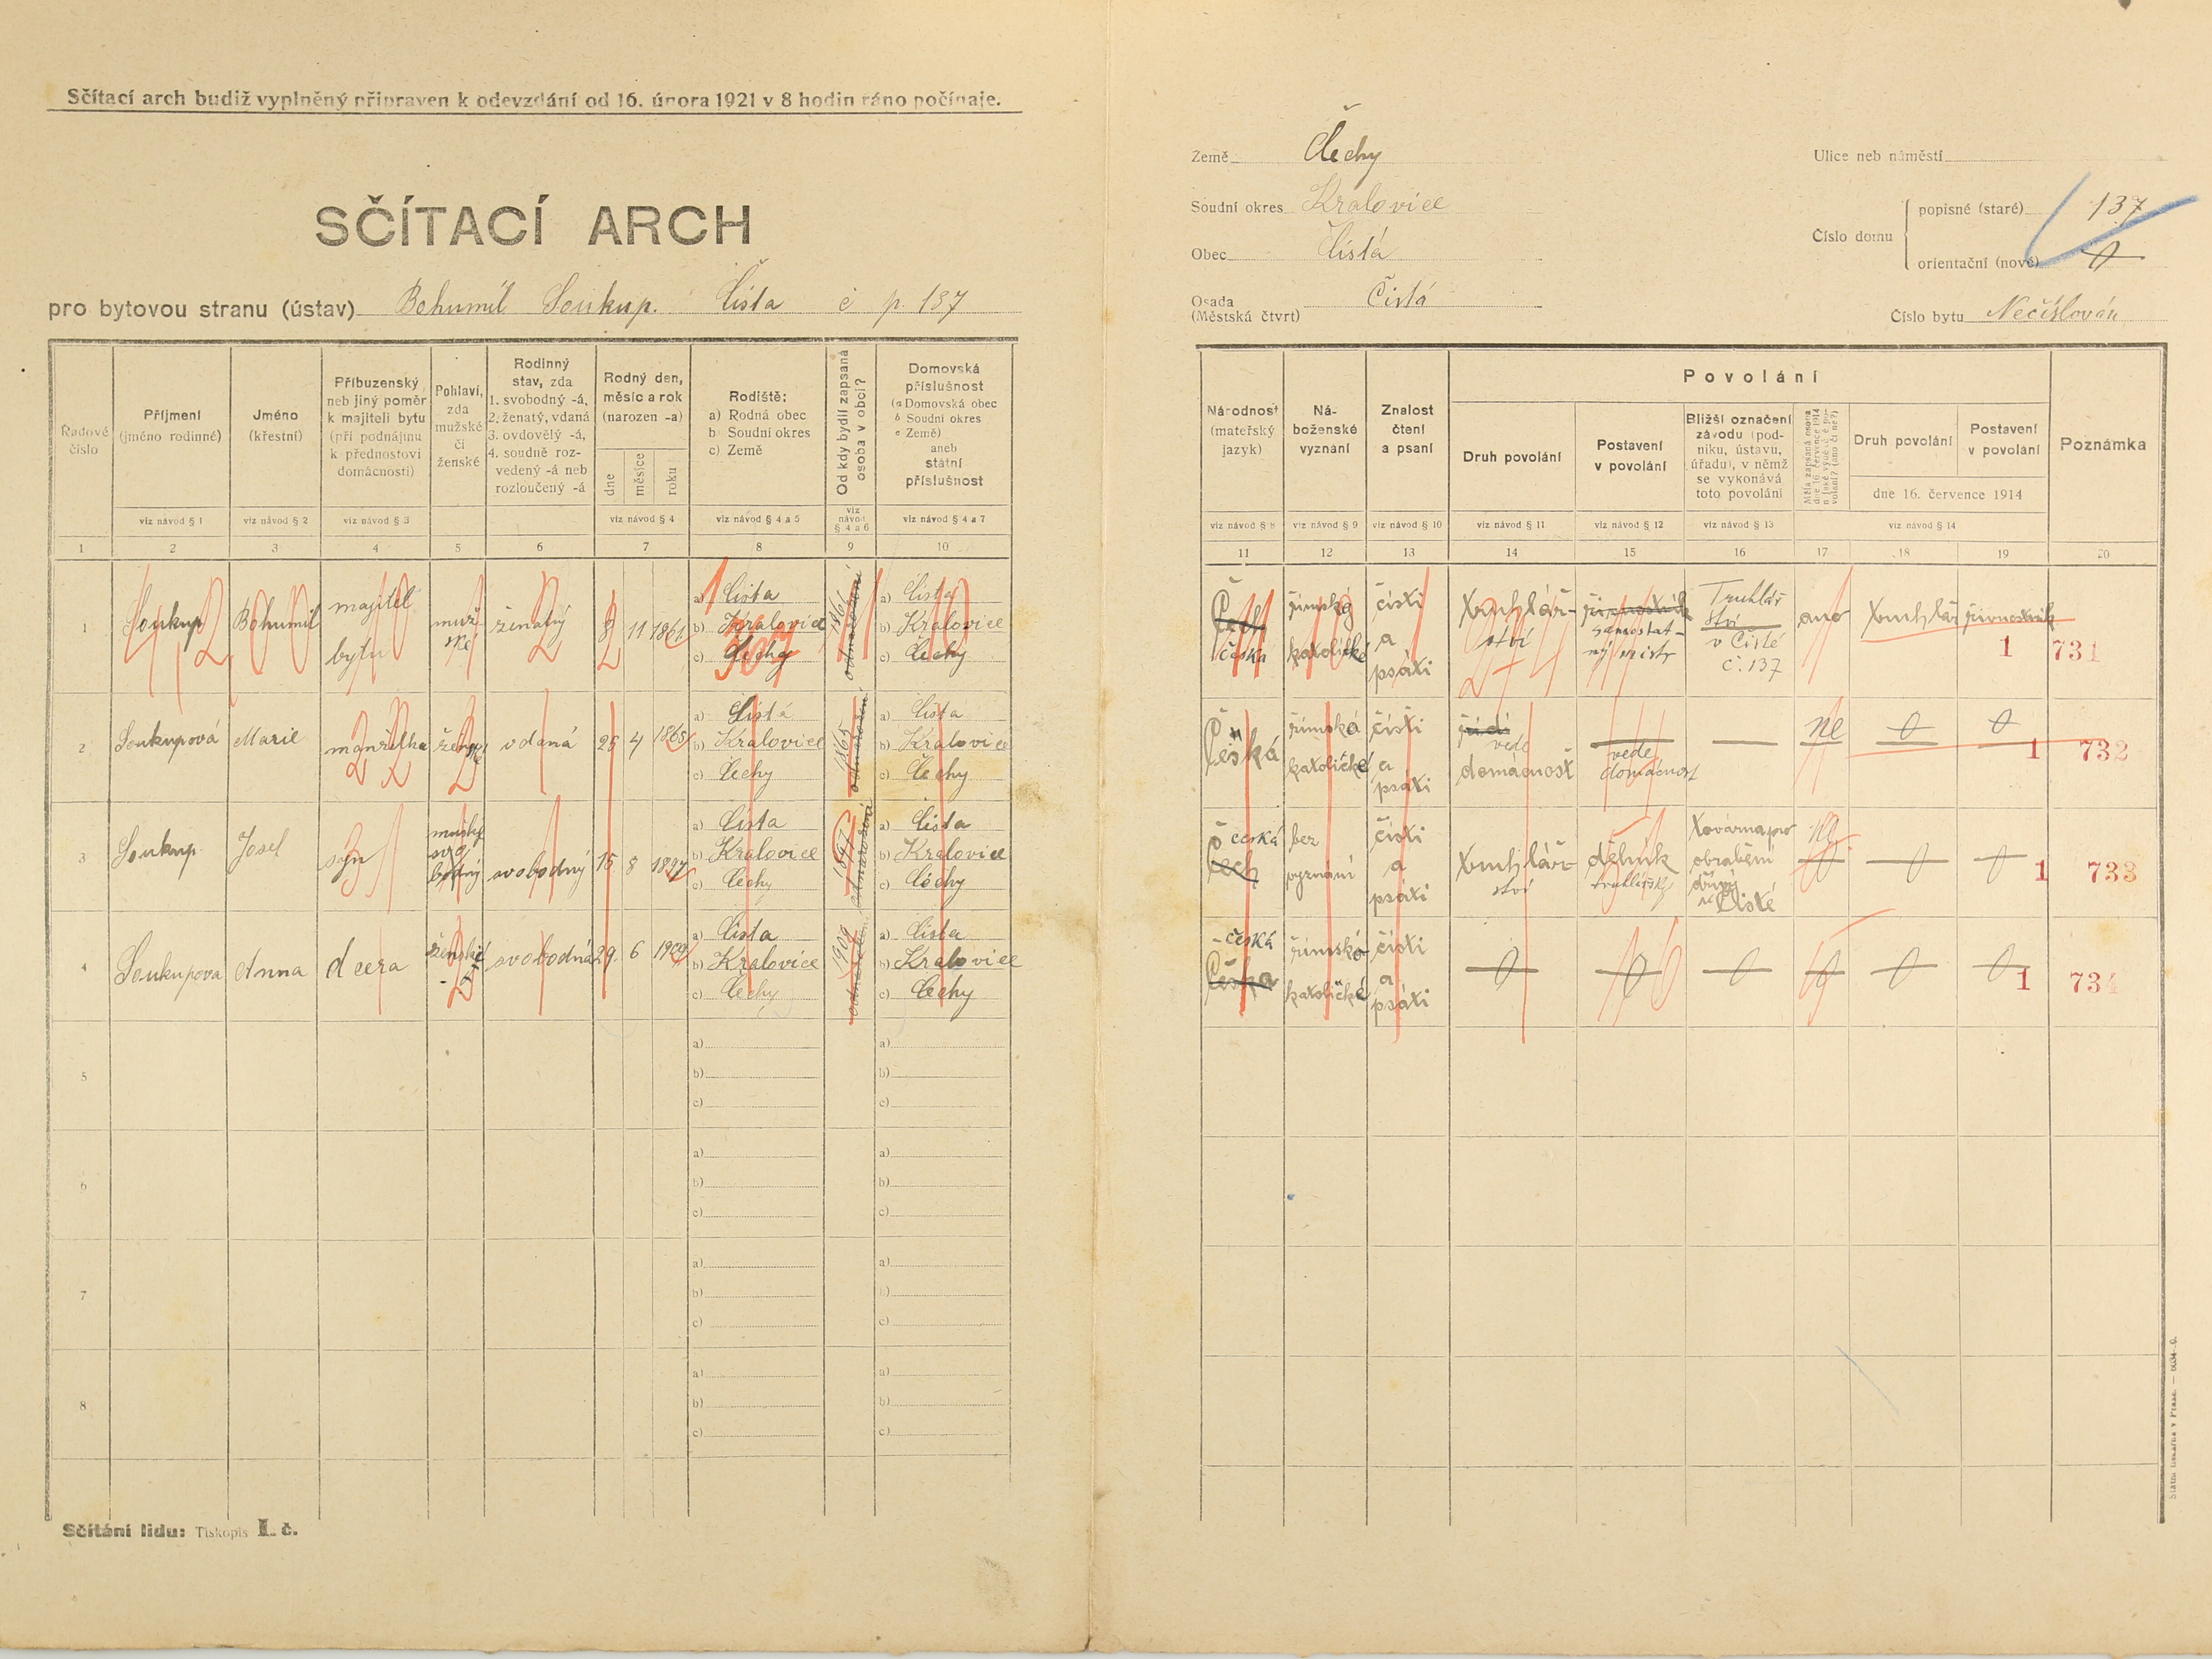 Sčítací arch budiž vyplněný připraven k odevzdání od 16. února 1921 v 8 hodin ráno počínaje.
SČÍTACÍ ARCH
pro bytovou stranu (ústav) Bohumil Soukup. Čista č p. 137
Řadové číslo
Příjmení
(jméno rodinné)
Jméno
(křestní)
Příbuzenský
neb jiný poměr
k majiteli bytu
(při podnájmu
k přednostovi
domácnosti)
Pohlaví,
zda
mužské
či
ženské
Rodinný
stav, zda
1. svobodný -á,
2. ženatý, vdaná
3. ovdovělý -á,
4. soudně roz-
vedený -á neb
rozloučený -á
Rodný den,
měsíc a rok
(narozen -a)
dne
měsíce
roku
Rodiště:
a) Rodná obec
b) Soudní okres
c) Země
Od kdy bydlí zapsaná
osoba v obci?
Domovská
příslušnost
(a Domovská obec
b Soudní okres
c Země)
aneb
státní
příslušnost
viz návod § 1
viz návod § 2
viz návod § 3
viz návod § 4
viz návod § 4 a 5
viz
návod
§ 4 a 6
viz návod § 4 a 7
1 2 3 4 5 6 7 8 9 10
1 Soukup Bohumil
majitel
bytu
muž-
ské
ženatý
8 11 1861
a) Čista
b) Kralovice
c) Čechy
1861
od narození
a) Čista
b) Kralovice
c) Čechy
2 Soukupová Marie manželka ženské vdaná 25 4 1865
a) Čistá
b) Kralovice
c) Čechy
1865
od narození
a) Čista
b) Kralovice
c) Čechy
3 Soukup Josef syn
mužský
svo
bodný
svobodný 15 8 1897
a) Čista
b) Kralovice
c) Čechy
1897
od narození
a) Čista
b) Kralovice
c) Čechy
4 Soukupova Anna dcera ženské svobodná 29. 6 1909
a) Čista
b) Kralovice
c) Čechy
1909
a) Čista
b) Kralovice
c) Čechy
5
a)
b)
c)
a)
b)
c)
6
a)
b)
c)
a)
b)
c)
7
a)
b)
c)
a)
b)
c)
8
a)
b)
c)
a)
b)
c)
Sčítání lidu: Tiskopis I. č.
Země Čechy
Soudní okres Kralovice
Obec Čistá
Osada
(Městská čtvrt) Čistá
Ulice neb náměstí
Číslo domu
popisné (staré) 137
orientační (nové) 0
Číslo bytu Nečíslován
Národnost
(mateřský
jazyk)
Ná-
boženské
vyznání
Znalost
čtení
a psaní
Povolání
Druh povolání
Postavení
v povolání
Bližší označení
závodu (pod-
niku, ústavu,
úřadu), v němž
se vykonává
toto povolání
Měla zapsaná osoba
dne 16. července 1914
nějaké výdělečné po-
volání? (ano či ne?)
Druh povolání
Postavení
v povolání
dne 16. července 1914
Poznámka
viz návod § 8
viz návod § 9
viz návod § 10
viz návod § 11
viz návod § 12
viz návod § 13
viz návod § 14
11 12 13 14 15 16 17 18 19 20
Čech
česká
římsko
katolické
čísti
a
psáti
truhlář-
ství
živnostník
samostat-
ný mistr
Truhlář
ství
v Čisté
č. 137
ano truhlář živnostník
1 731
Česká
římská
katolické
čísti
a
psáti
řídí
vede
domácnost
vede
domácnost
ne 0 0
1 732
česká
Čech
bez
vyznání
čísti
a
psáti
truhlář-
ství
dělník
truhlářský
továrna pro
obrábění
dříví
v Čisté
ne
0 0 0
1 733
česká
Česka
římsko
katolické
čísti
a
psáti
0 0 0 0 0 0
1 734
Státní tiskárna v Praze. — 6034-0.